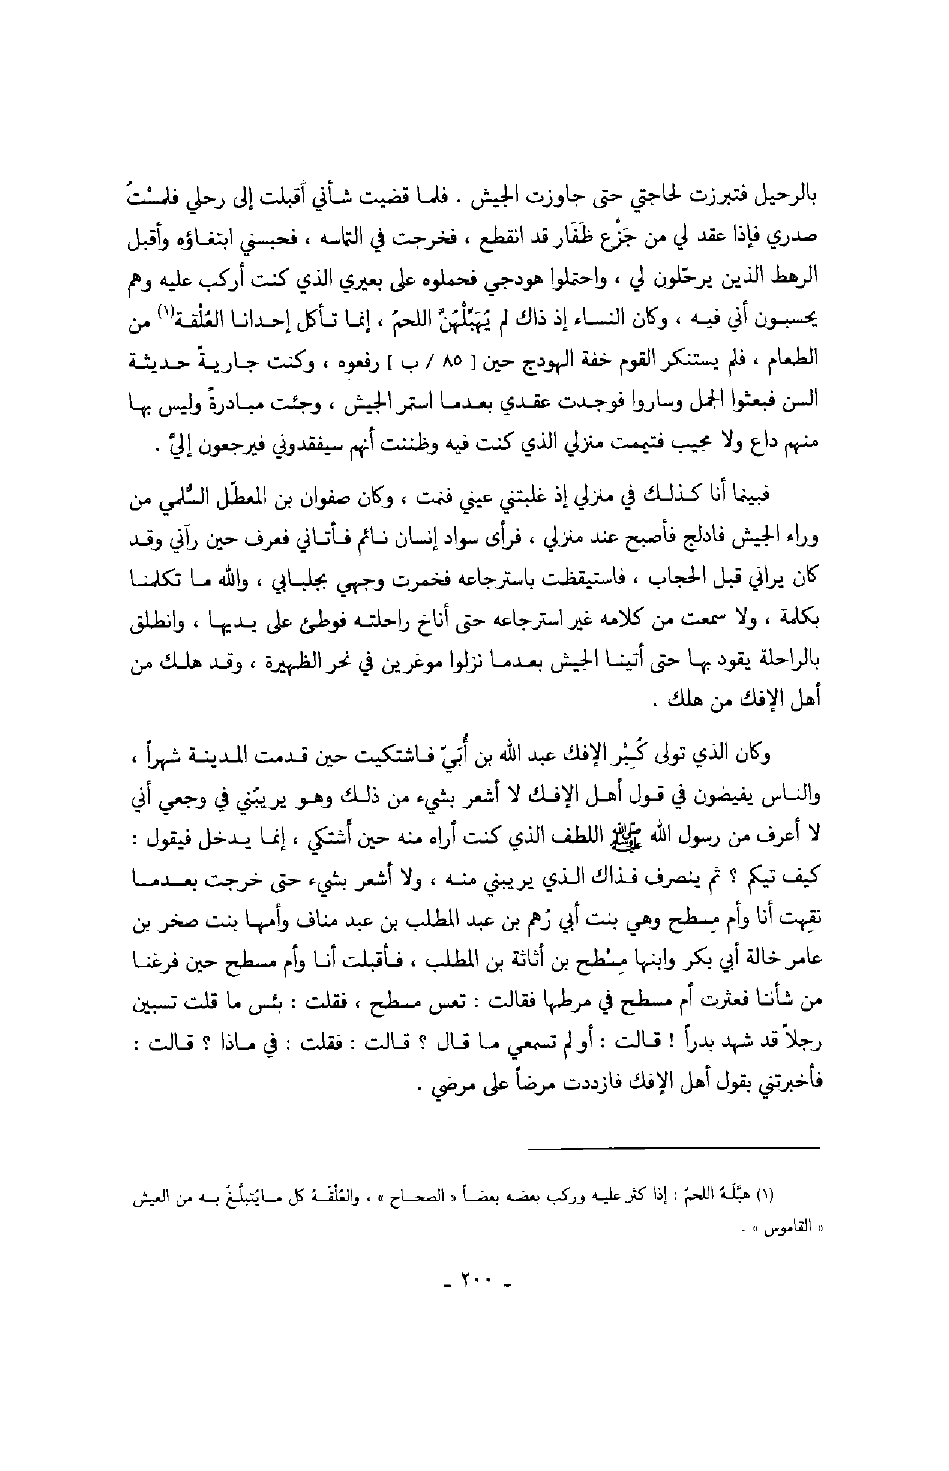 بالرحيل فتبرزت لحاجتي حتى جاوزت الجيش . فلما قضيت شأني أقبلت إلى رحلي فلمستُ
صدري فإذا عقد لي من جَزْع ظَفَار قد انقطع ، فخرجت في التماسه ، فحبسني ابتغاؤه وأقبل
الرهط الذين يرحّلون لي ، واحتملوا هودجي فحملوه على بعيري الذي كنت أركب عليه وهم
يحسبون أني فيه ، وكان النساء إذ ذاك لم يُهَبِّلْهنَّ اللحمُ ، إنما تأكل إحدانا العُلْقة(١) من
الطعام ، فلم يستنكر القوم خفة الهودج حين [ ٨٥ / ب ] رفعوه ، وكنت جاريةً حديثة
السن فبعثوا الجمل وساروا فوجدت عقدي بعدما استمر الجيش ، وجئت مبادرةً وليس بها
منهم داع ولا مجيب فتيممت منزلي الذي كنت فيه وظننت أنهم سيفقدوني فيرجعون إليّ .
فبينما أنا كذلك في منزلي إذ غلبتني عيني فنمت ، وكان صفوان بن المعطّل السُّلمي من
وراء الجيش فادلج فأصبح عند منزلي ، فرأى سواد إنسان نائم فأتاني فعرف حين رآني وقد
كان يراني قبل الحجاب ، فاستيقظت باسترجاعه فخمرت وجهي بجلبابي ، والله ما تكلمنا
بكلمة ، ولا سمعت من كلامه غير استرجاعه حتى أناخ راحلته فوطئ على يديها ، وانطلق
بالراحلة يقود بها حتى أتينا الجيش بعدما نزلوا موغرين في نحر الظهيرة ، وقد هلك من
أهل الإفك من هلك .
وكان الذي تولى كُبْر الإفك عبد الله بن أُبَيّ فاشتكيت حين قدمت المدينة شهراً ،
والناس يفيضون في قول أهل الإفك لا أشعر بشيء من ذلك وهو يريبُني في وجعي أني
لا أعرف من رسول الله ﷺ اللطف الذي كنت أراه منه حين أشتكي ، إنما يدخل فيقول :
كيف تيكم ؟ ثم ينصرف فذاك الذي يريبني منه ، ولا أشعر بشيء حتى خرجت بعدما
نقهت أنا وأم مِسطح وهي بنت أبي رُهم بن عبد المطلب بن عبد مناف وأمها بنت صخر بن
عامر خالة أبي بكر وابنها مِسْطح بن أثاثة بن المطلب ، فأقبلت أنا وأم مسطح حين فرغنا
من شأننا فعثرت أم مسطح في مرطها فقالت : تعس مسطح ، فقلت : بئس ما قلت تسبين
رجلاً قد شهد بدراً ! قالت : أو لم تسمعي ما قال ؟ قالت : فقلت : في ماذا ؟ قالت :
فأخبرتني بقول أهل الإفك فازددت مرضاً على مرضي .
(١) هبَّلهُ اللحمُ : إذا كثر عليه وركب بعضه بعضاً « الصحاح » ، والعُلْقَة كل ما يُتبلَّغ به من العيش
« القاموس » .
ـ ٢٠٠ ـ